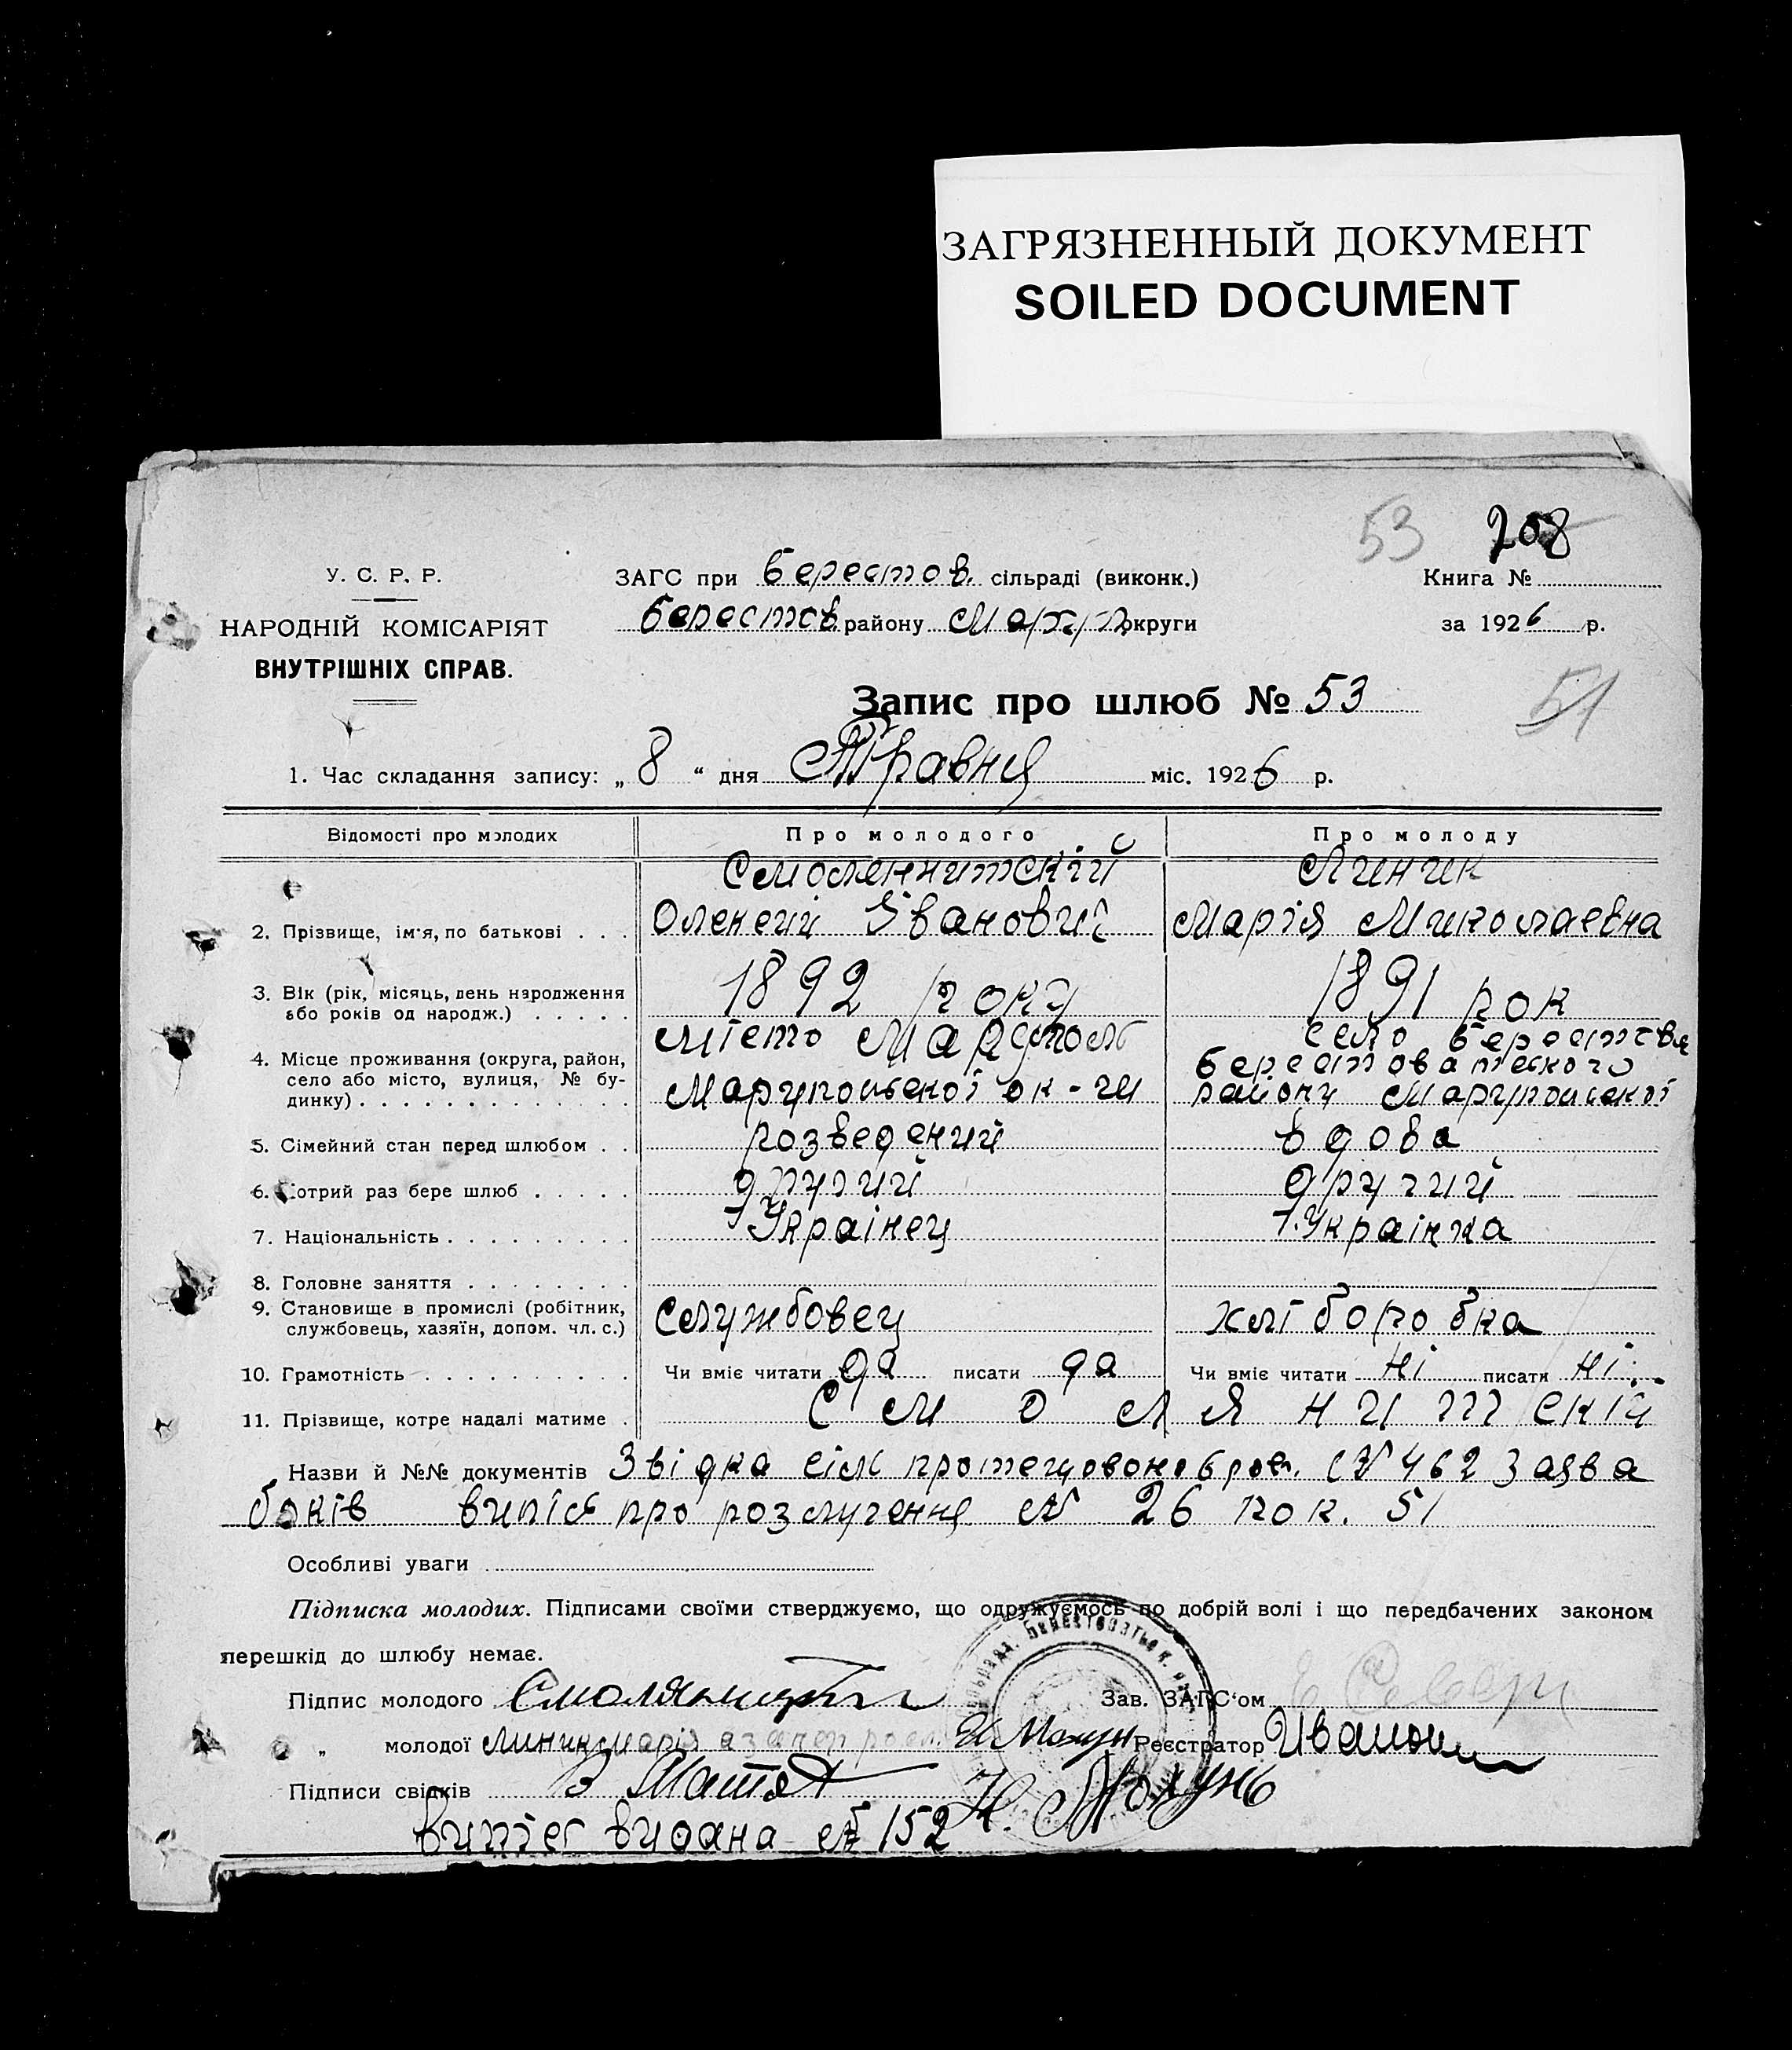 ЗАГРЯЗНЕННЫЙ ДОКУМЕНТ
SOILED DOCUMENT
53 208
У. С. Р. Р.
НАРОДНІЙ КОМІСАРІЯТ
ВНУТРІШНІХ СПРАВ.
ЗАГС при Берестов. сільраді (виконк.)
Берестов району Маруп округи
Книга №
за 1926 р.
Запис про шлюб № 53
51
1. Час складання запису: „ 8 “ дня Травня міс. 1926 р.
Відомості про молодих Про молодого Про молоду
Смоленнитскій Линник
2. Прізвище, ім'я, по батькові . . . Олексий Іванович Марія Миколаевна
3. Вік (рік, місяць, день народження 1892 року 1891 рок
або років од народж.) . . . . .
місто Маруполь село Берестове
4. Місце проживання (округа, район, Берестоватского
село або місто, вулиця, № бу-
динку) . . . . . . . . . . . . . Марупольскої ок-ги району Марупольскої
5. Сімейний стан перед шлюбом . . розведений вдова
6. Котрий раз бере шлюб . . . . . другий другий
7. Національність . . . . . . . . . Украінец Украінка
8. Головне заняття . . . . . . . .
9. Становище в промислі (робітник, службовец хліборобка
службовець, хазяїн, допом. чл. с.)
10. Грамотність . . . . . . . . . . Чи вміє читати да писати да Чи вміє читати ні писати ні
11. Прізвище, котре надалі матиме . Смолянитскій
Назви й №№ документів Звідка сіль № 462 Заява
боків випісь про розлучення № 26 рок. 51
Особливі уваги
Підписка молодих. Підписами своїми стверджуємо, що одружуємось по добрій волі і що передбачених законом
перешкід до шлюбу немає.
Підпис молодого Зав. ЗАГС'ом
„ молодої Линник марія Реєстратор Иванон
Підписи свідків
Випіег видана № 152